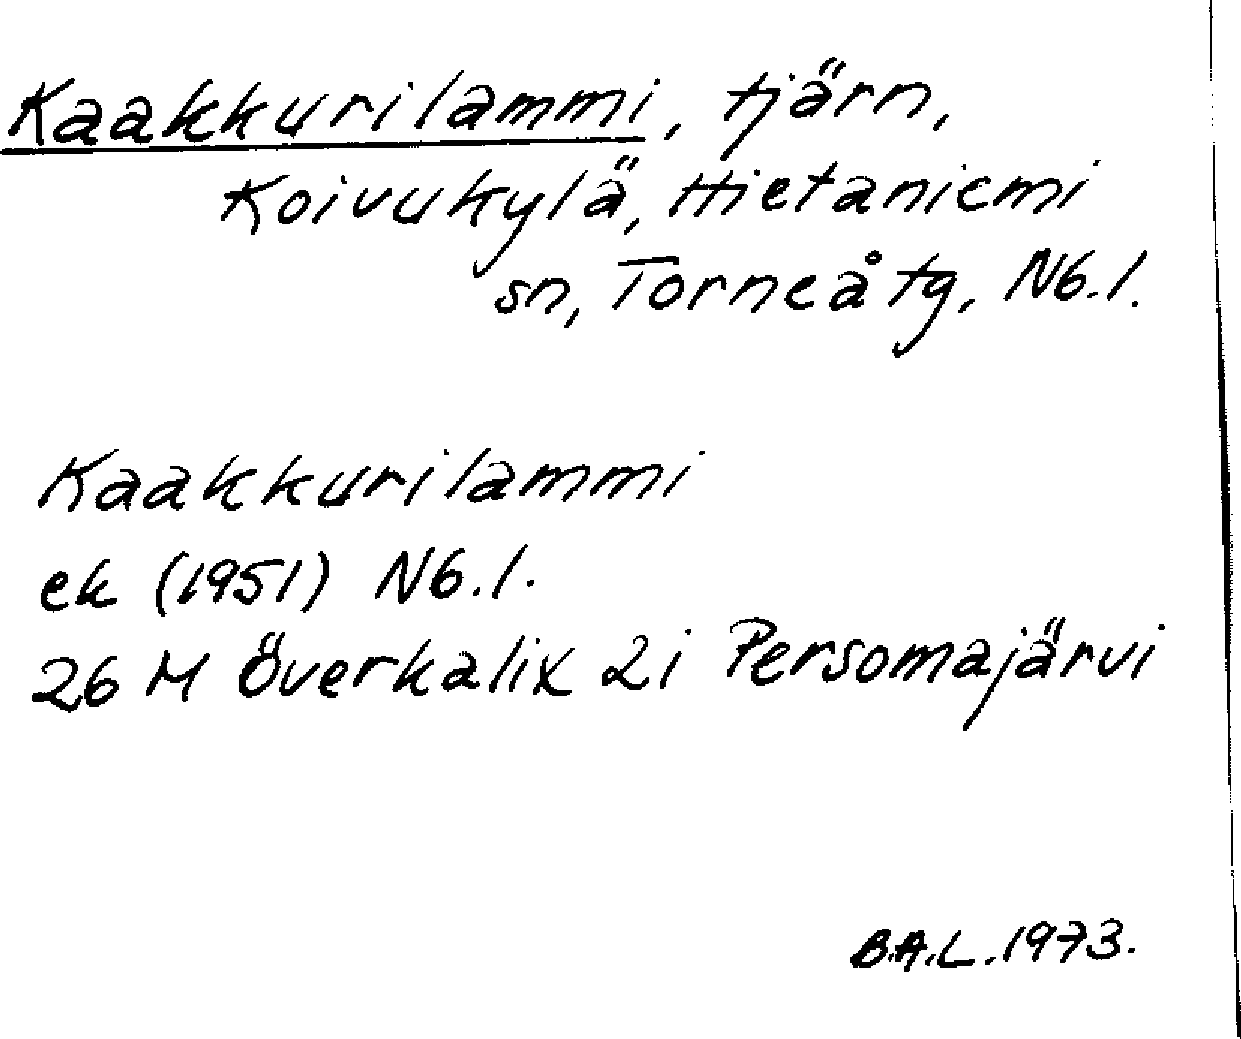 Kaakkurilammi, tjärn,
Koivukylä, Hietaniemi
sn, Torneå tg, N6.1.
Kaakkurilammi
ek (1951) N6.1.
26 M Överkalix 2i Persomajärvi
B.A.L. 1973.